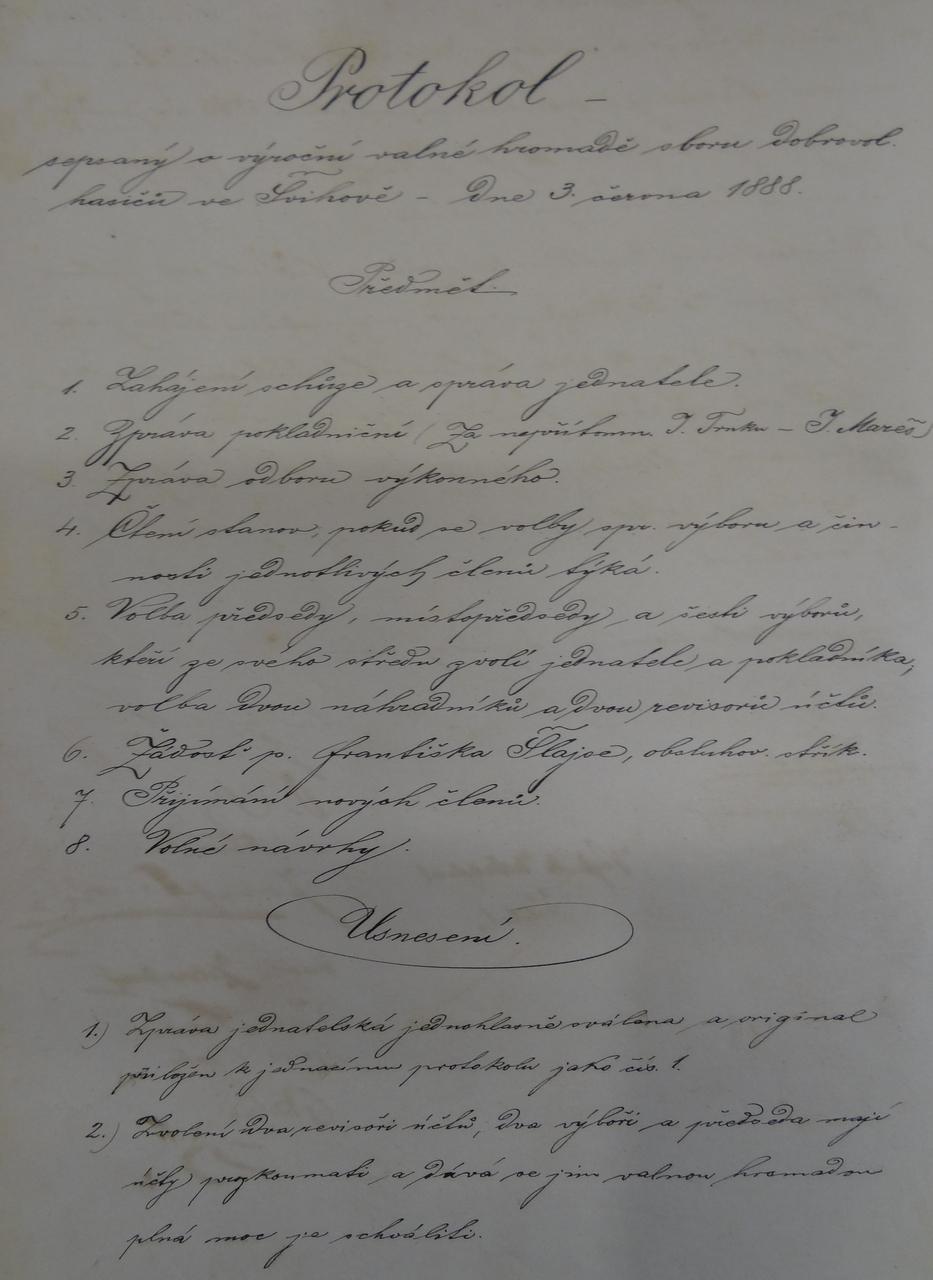 Protokol –
sepsaný o výroční valné hromadě sboru dobrovol.
hasičů ve Švihově – dne 3. června 1888.
Předmět.
1. Zahájení schůze a správa jednatele.
2. Zpráva pokladniční (Za nepřítomn. J. Trnku – J. Mareš)
3. Zpráva odboru výkonného.
4. Čtení stanov, pokud se volby spr. výboru a čin-
nosti jednotlivých členů týká.
5. Volba předsedy, místopředsedy a šesti výborů,
kteří ze svého středu zvolí jednatele a pokladníka,
volba dvou náhradníků a dvou revisorů účtů.
6. Žádost p. Františka Šlajse, obsluhov. střík.
7. Přijímání nových členů.
8. Volné návrhy.
Usnesení.
1.) Zpráva jednatelská jednohlasně sválena a original
přiložen k jednacímu protokolu jako čís. 1.
2.) Zvolení dva revisoři účtů, dva výboři a předseda mají
účty prozkoumati a dává se jim valnou hromadou
plná moc je schváliti.